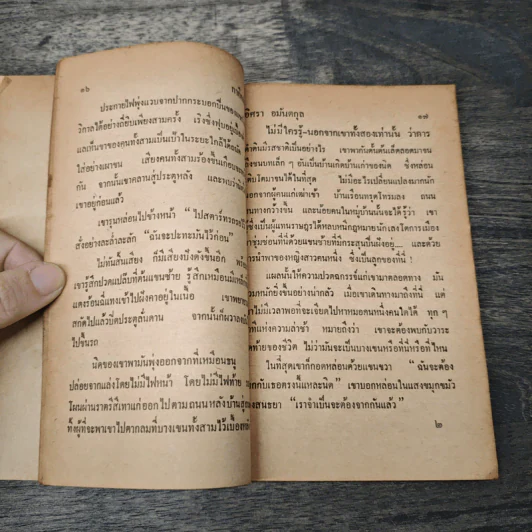 ๑๖
ประกายไฟพุ่งแวบจากปากกระบอกปืนของ
วิกาลได้อย่างถี่ยิบเพียงสามครั้ง เริงชิงฟุบอยู่
แลเห็นขาของคนทั้งสามเป็นเป้าในระยะใกล้
ใส่อย่างเผาขน เสียงคนทั้งสามร้องขึ้นเกือบ
กัน จากนั้นเขาคลานสู่ประตูหลัง และพบว่า
เขาอยู่ก่อนแล้ว
เขารุนหล่อนไปข้างหน้า "ไปสตาร์ทรถ
สั่งอย่างละล่ำละลัก "ฉันจะปะทะมันไว้ก่อน"
ไม่ทันสิ้นเสียง ก็มีเสียงปังดังขึ้นอีก
เขารู้สึกปวดแปล๊บที่ต้นแขนซ้าย รู้สึกเหมือนมี
แดงร้อนฉี่แทงเข้าไปฝังคาอยู่ในเนื้อ เขา
สกัดไปแล้วปิดประตูลั่นดาน จากนั้นก็ผวา
ไปขึ้นรถ
นิดของเขาพามันพุ่งออกจากที่เหมือนธนู
ปล่อยจากแล่งโดยไม่มีไฟหน้า โดยไม่มีไฟท้าย
โผนผ่านราตรีสีเทาแก่ออกไปตามถนนหลังบ้าน
ทิ้งผู้ที่จะพาเขาไปตากลมที่บางเขนทั้งสามไว้เบื้อง
อิศรา อมันตกุล
๑๗
ไม่มีใครรู้–นอกจากเขาทั้งสองเท่านั้น ว่าการ
ดำเนินรสชาติเป็นอย่างไร เขาพากันดั้นด้นเล็ดลอดมาจน
ชนบทเล็ก ๆ อันเป็นบ้านเกิดบ้านเก่าของนิด ซึ่งหล่อน
เติบโตมาจนได้ในที่สุด ไม่มีอะไรเปลี่ยนแปลงมากนัก
นอกจากผู้คนแก่เฒ่าเข้า บ้านเรือนทรุดโทรมลง ถนน
หนทางกว้างขึ้น และน้อยคนในหมู่บ้านนั้นจะได้รู้ว่า เขา
ซึ่งเป็นผู้แทนราษฎรได้หลบหนีกฎหมายนักเลงโตการเมือง
มาซุ่มซ่อนที่นี่ด้วยแขนซ้ายที่มีกระสุนปืนฝังอยู่... และด้วย
การนำพาของหญิงสาวคนหนึ่ง ซึ่งเป็นลูกของที่นี่ !
แผลนั้นให้ความปวดฉกรรจ์แก่เขามาตลอดทาง มัน
หนักยิ่งขึ้นอย่างน่ากลัว เมื่อเขาเดินทางมาถึงที่นี่ แต่
ไม่มีเวลาพอที่จะเจียดไปหาหมอคนหนึ่งคนใดได้ ทุก ๆ
นาทีแห่งความล่าช้า หมายถึงว่า เขาจะต้องพบกับวาระ
สุดท้ายของชีวิต ไม่ว่ามันจะเป็นบางเขนหรือที่นี่หรือที่ไหน
ในที่สุดเขาก็กอดหล่อนด้วยแขนขวา "ฉันจะต้อง
จากกับเธอตรงนี้แหละนิด" เขาบอกหล่อนในแสงขมุกขมัว
ของสนธยา "เราจำเป็นจะต้องจากกันแล้ว"
๒